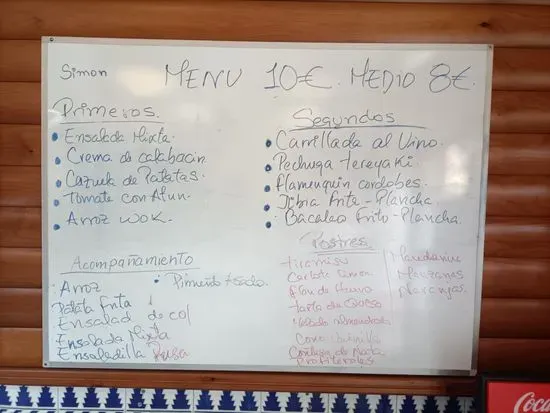 Simon MENU 10€. MEDIO 8€.
Primeros.
Ensalada Mixta.
Crema de calabacin
Cazuela de Patatas.
Tomate con Atun.
Arroz WOK.
Segundos
Carrillada al Vino.
Pechuga tereyaki
flamenquin cordobes.
Jibia frite - Plancha.
Bacalao frito - Plancha.
Acompañamiento
Arroz
Patata frita
Ensalad de col
Ensalada Mixta
Ensaladilla Rusa
Pimiento Asado.
Postres
tiramisu
Carlota Simon
flan de Huevo
tarta de Queso
Helado almendrado
Cono
Profiteroles.
Manzanas
Naranjas.
Coca